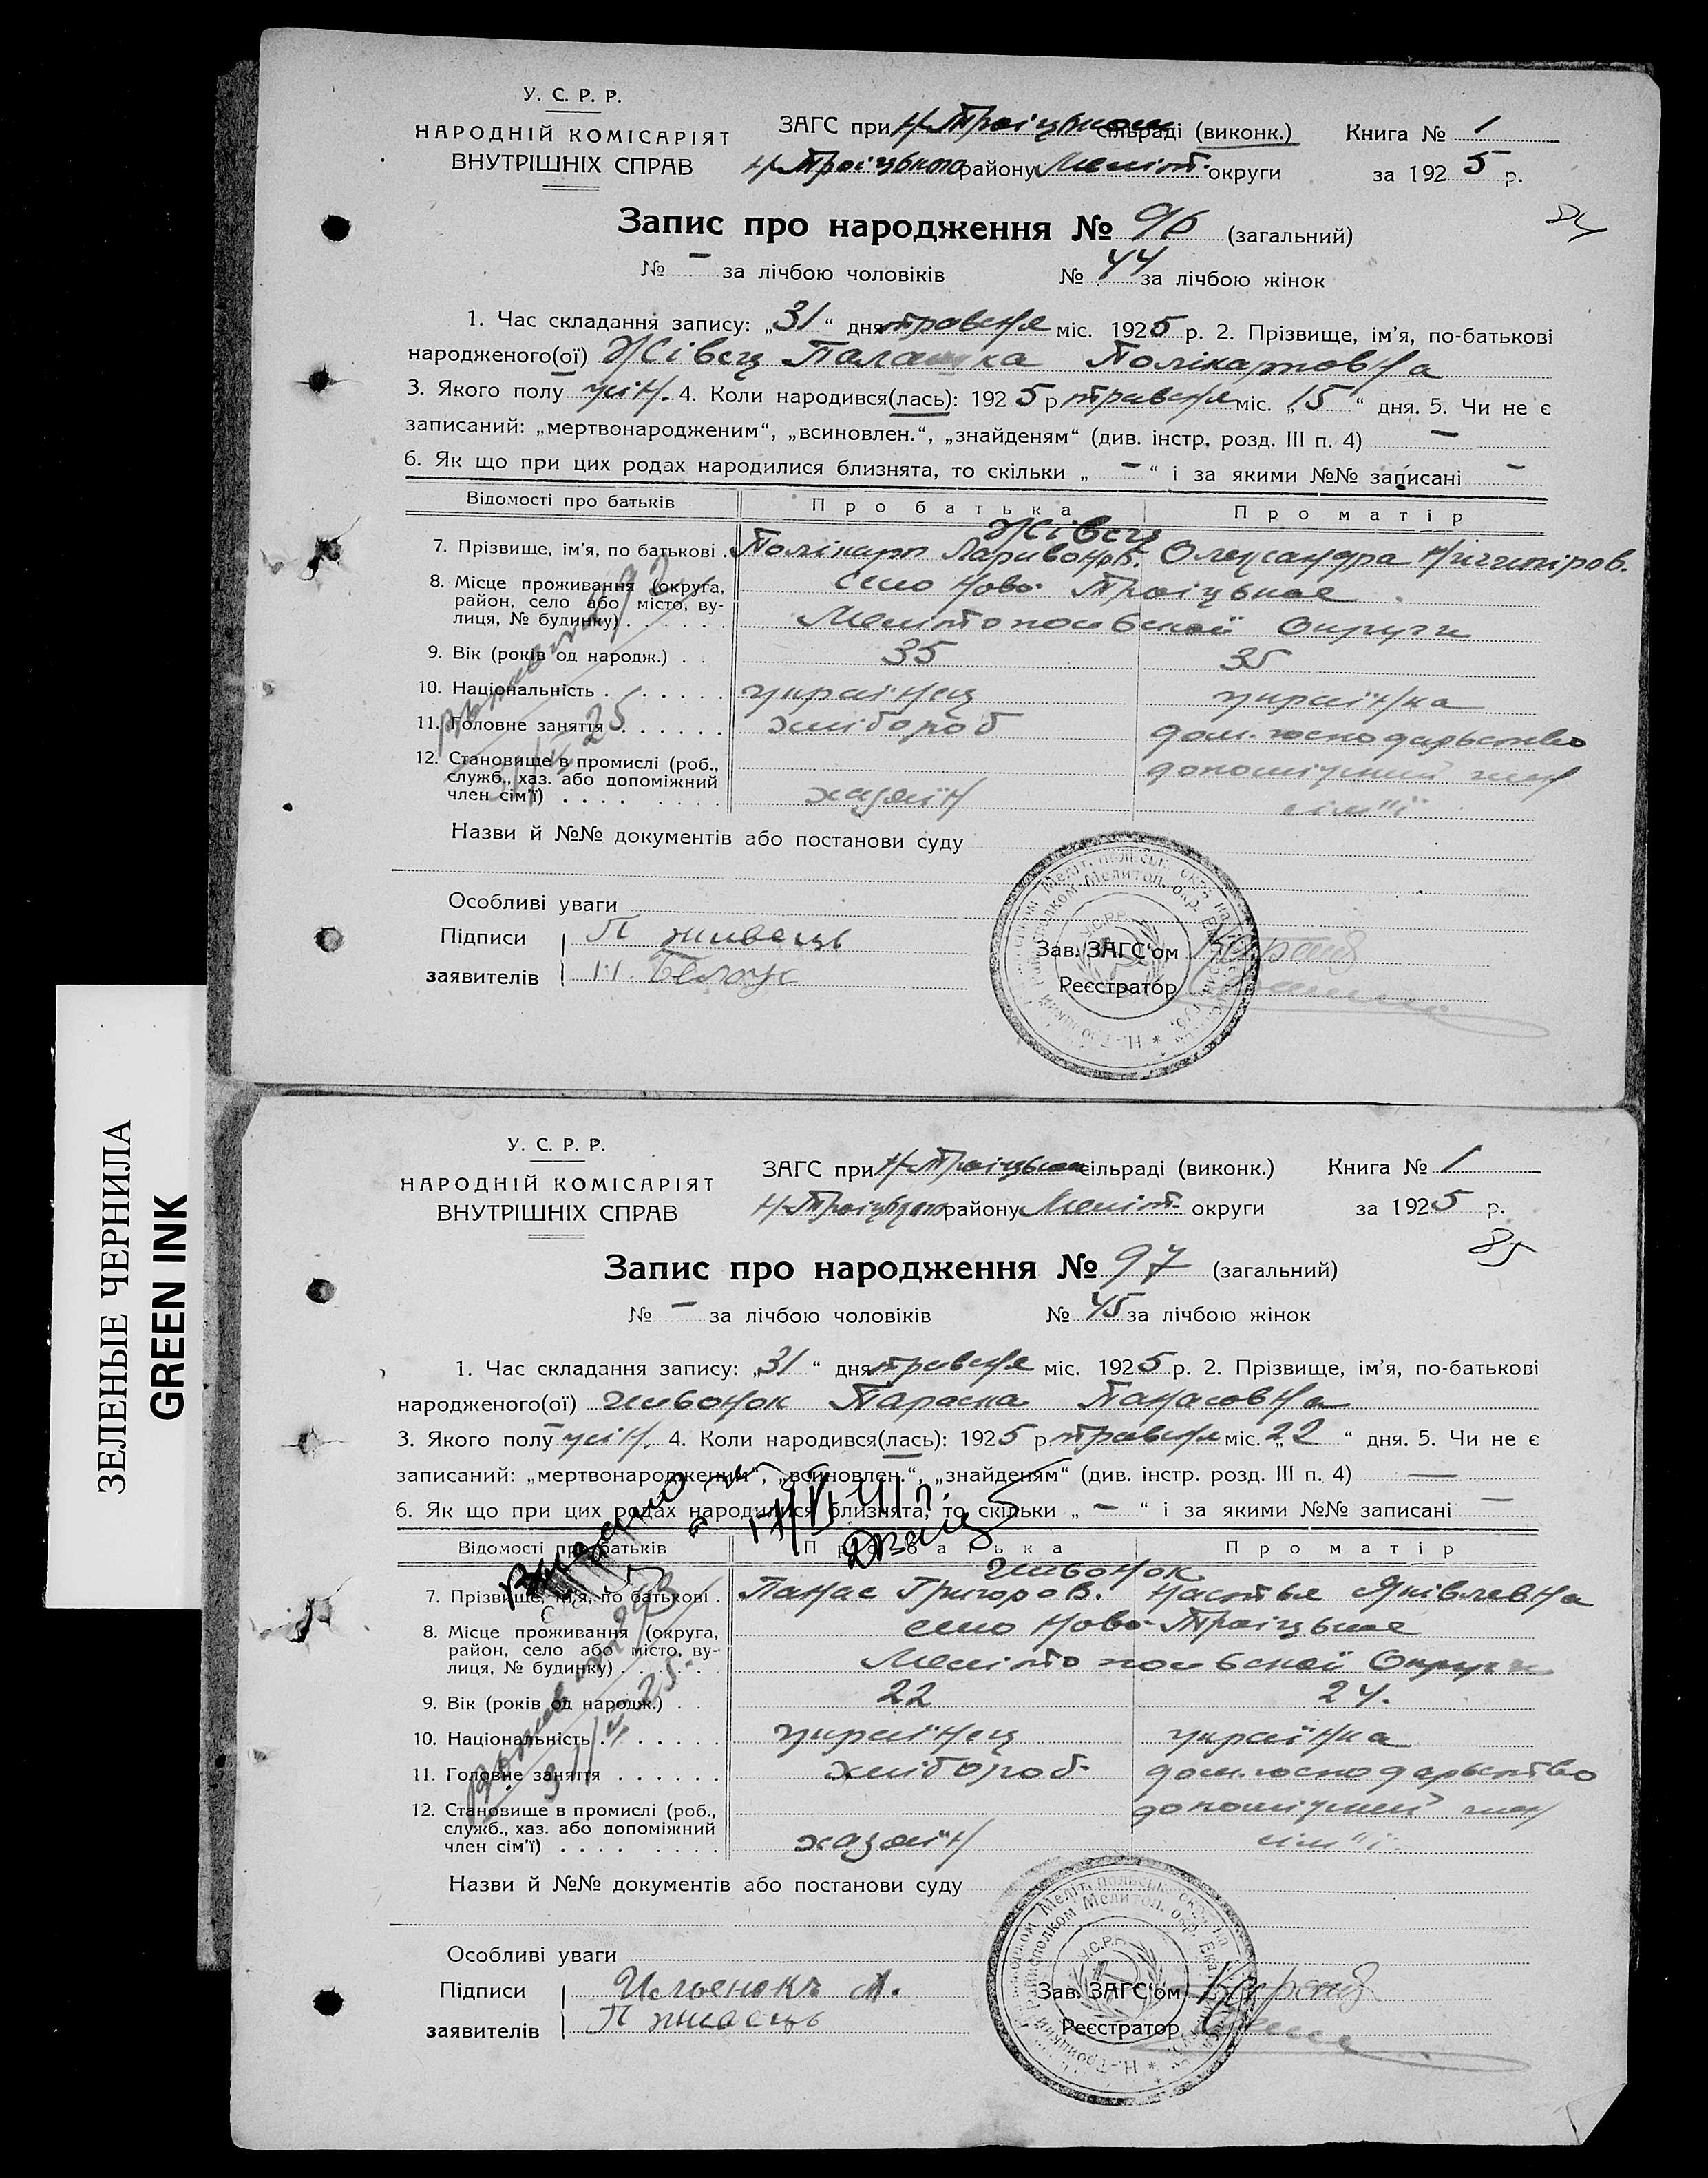 ЗЕЛЕНЫЕ ЧЕРНИЛА
GREEN INK
У. С. Р. Р.
НАРОДНІЙ КОМІСАРІЯТ
ВНУТРІШНІХ СПРАВ
ЗАГС при Н-Троіцьком сільраді (виконк.) Книга № 1
Н-Троіцького району Меліт. округи за 1925 р.
84
Запис про народження № 96 (загальний)
№ - за лічбою чоловіків № 44 за лічбою жінок
1. Час складання запису: „31“ дня травня міс. 1925 р. 2. Прізвище, ім’я, по-батькові
народженого(ої) Жівец Палашка Полікарповна
3. Якого полу жін. 4. Коли народився(лась): 1925 р травня міс. „15“ дня. 5. Чи не є
записаний: „мертвонародженим“, „всиновлен.“, „знайденям“ (див. інстр. розд. III п. 4) -
6. Як що при цих родах народилися близнята, то скільки „ - “ і за якими №№ записані -
Відомості про батьків Про батька Про матір
Жівец
7. Прізвище, ім’я, по батькові . Полікарп Ларивонов. Олександра Ничипіров.
8. Місце проживання (округа, село Ново-Троіцькое
район, село або місто, ву-
лиця, № будинку) . . . . . . Мелітопольськой Округи
9. Вік (років од народж.) . . 35 35
10. Національність . . . . . . украінец украінка
11. Головне заняття . . . . . . хлібороб дом. господарьство
12. Становище в промислі (роб., допоміжний член
служб., хаз. або допоміжний
член сім’ї) . . . . . . . . хазяїн сім"ї
31/V 25
Назви й №№ документів або постанови суду
Особливі уваги
Підписи П живець
заявителів
Зав. ЗАГС‘ом
Реєстратор
У. С. Р. Р.
НАРОДНІЙ КОМІСАРІЯТ
ВНУТРІШНІХ СПРАВ
ЗАГС при Н-Троіцьком сільраді (виконк.) Книга № 1
Н-Троіцького району Меліт. округи за 1925 р.
85
Запис про народження № 97 (загальний)
№ - за лічбою чоловіків № 45 за лічбою жінок
1. Час складання запису: „31“ дня травня міс. 1925 р. 2. Прізвище, ім’я, по-батькові
народженого(ої) Ильонок Параска Панасовна
3. Якого полу жін. 4. Коли народився(лась): 1925 р травня міс. „22“ дня. 5. Чи не є
записаний: „мертвонародженим“, „всиновлен.“, „знайденям“ (див. інстр. розд. III п. 4) —
6. Як що при цих родах народилися близнята, то скільки „ - “ і за якими №№ записані —
Відомості про батьків Про батька Про матір
Ильонок
7. Прізвище, ім’я, по батькові . Панас Григоров. Настья Яківлевна
8. Місце проживання (округа, село Ново-Троіцькое
район, село або місто, ву-
лиця, № будинку) . . . . . . Мелітопольськой Округи
9. Вік (років од народж.) . . 22 24.
10. Національність . . . . . . украінец украінка
11. Головне заняття . . . . . . хлібороб. дом. господарьство
12. Становище в промислі (роб., допоміжний член
служб., хаз. або допоміжний
член сім’ї) . . . . . . . . хазяїн сім"ї.
31/V 25.
Назви й №№ документів або постанови суду
Особливі уваги
Підписи Ильенокъ А.
заявителів П живець
Зав. ЗАГС‘ом
Реєстратор